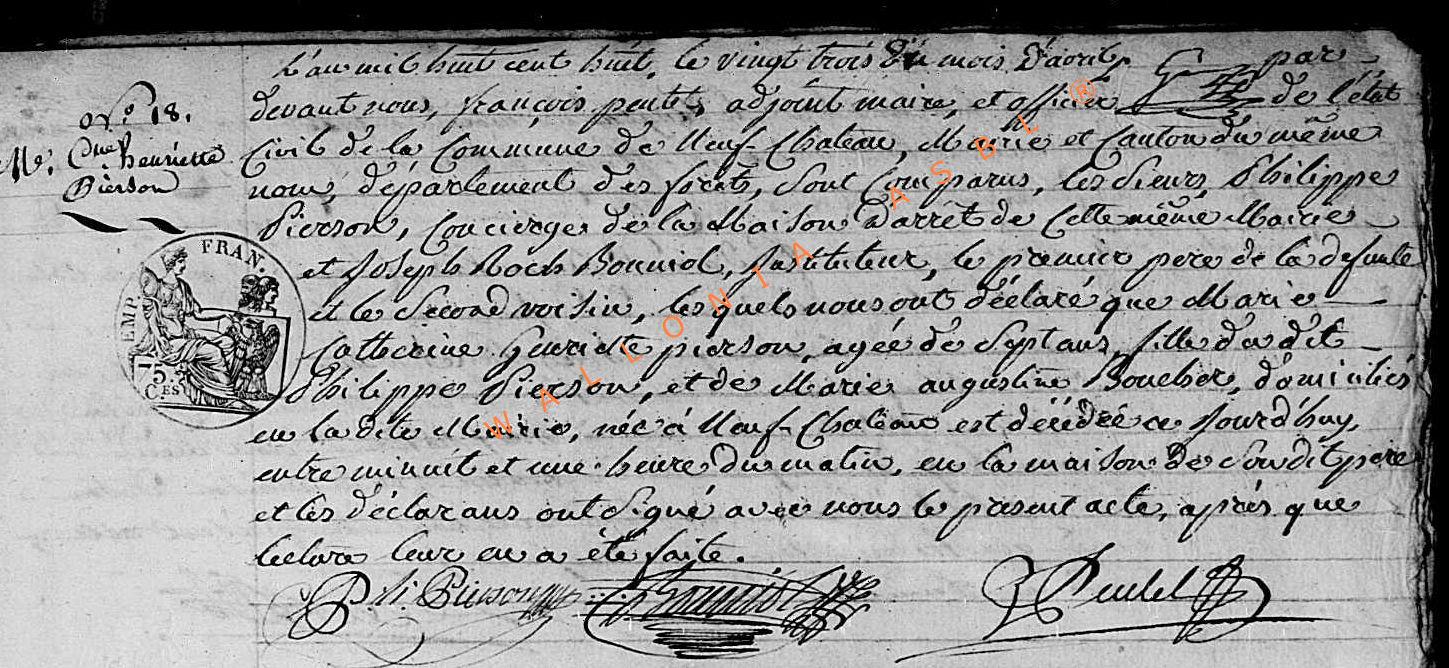 L'an mil huit cent huit, le vingt trois du mois d'avril, par
devant nous, françois pent, adjoint maire, et officier de l'état
N.° 18.
M.e C.ne henriette
Pierson
Civil de la Commune de Neuf-Chateau, Mairie et Canton du même
nom, département des forêts, sont Comparus, les Sieurs, Philippe
Pierson, Concierge de la Maison d'arrêt de Cette même Mairie
et Joseph Roch Bonniol, Instituteur, le premier pere de la defunte
et le Second voisin, les quels nous ont déclaré que Marie
Catherine Henriette pierson, agée de Sept ans, fille du dit
Philippe Pierson, et de Marie augustine Bouchér, domiciliés
en la dite Mairie, née à Neuf-Chateau est décédée ce Jourd'huy,
entre minuit et une heure du matin, en la maison de Son dit pere
et les déclarans ont Signé avec nous le present acte, après que
lecture leur en a été faite.
Ph. Pierson Bonniol
EMP. FRAN.
75
CES
WALLONIA ASBL ®